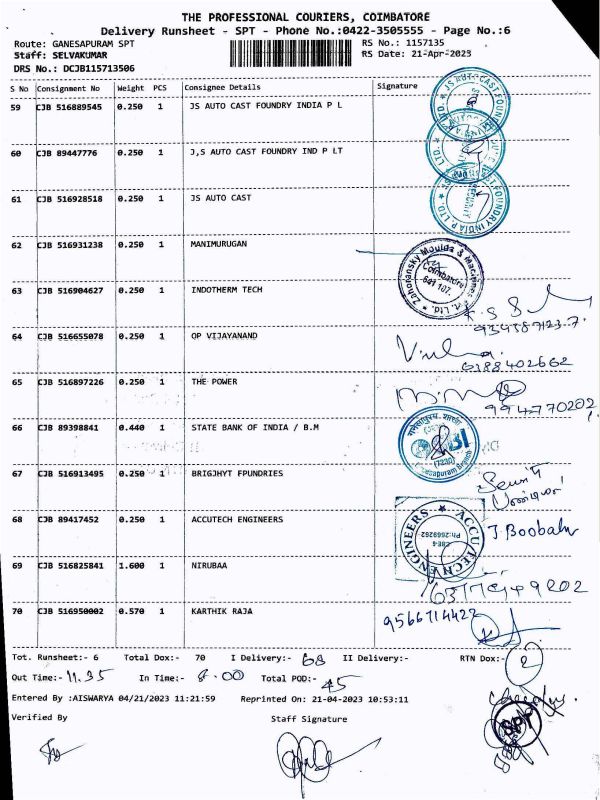 THE PROFESSIONAL COURIERS, COIMBATORE
Delivery Runsheet - SPT - Phone No.:0422-3505555 - Page No.:6
Route: GANESAPURAM SPT RS No.: 1157135
Staff: SELVAKUMAR RS Date: 21-Apr-2023
DRS No.: DCJB115713506
S No Consignment No Weight PCS Consignee Details Signature
59 CJB 516889545 0.250 1 JS AUTO CAST FOUNDRY INDIA P L
60 CJB 89447776 0.250 1 J,S AUTO CAST FOUNDRY IND P LT
61 CJB 516928518 0.250 1 JS AUTO CAST
JS AUTO CAST FOUNDRY INDIA P. LTD.
SECURITY
62 CJB 516931238 0.250 1 MANIMURUGAN
Zahoransky Moulds & Machines Pvt. Ltd.
Coimbatore
641 107.
63 CJB 516904627 0.250 1 INDOTHERM TECH
64 CJB 516655078 0.250 1 OP VIJAYANAND
65 CJB 516897226 0.250 1 THE POWER
9994770202
66 CJB 89398841 0.440 1 STATE BANK OF INDIA / B.M
67 CJB 516913495 0.250 1 BRIGJHYT FPUNDRIES
68 CJB 89417452 0.250 1 ACCUTECH ENGINEERS
ACCUTECH ENGINEERS
J. Boobalu
69 CJB 516825841 1.600 1 NIRUBAA
70 CJB 516950002 0.570 1 KARTHIK RAJA
9566714422
Tot. Runsheet:- 6 Total Dox:- 70 I Delivery:- 68 II Delivery:- RTN Dox:- 2
Out Time:- 11.35 In Time:- 8.00 Total POD:- 45
Entered By :AISWARYA 04/21/2023 11:21:59 Reprinted On: 21-04-2023 10:53:11
Verified By Staff Signature
SPT